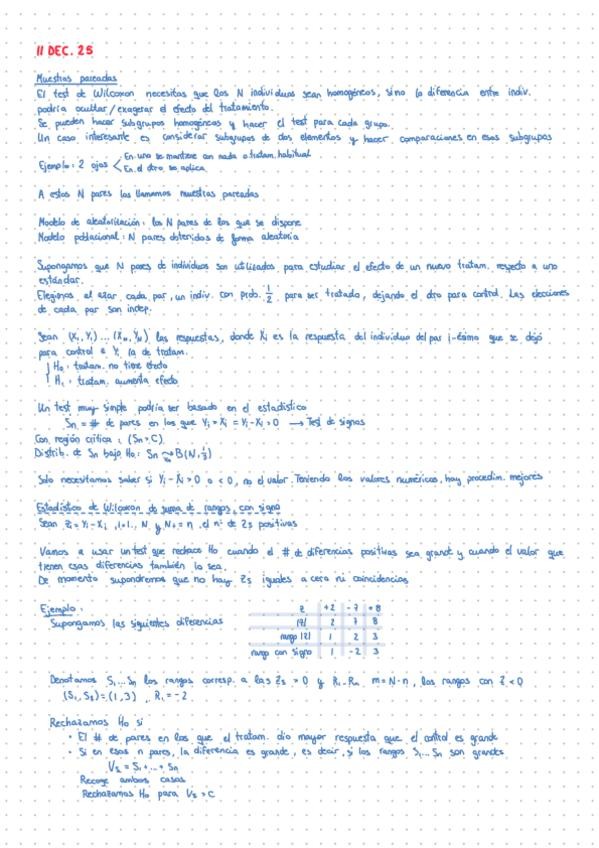 11 DEC. 25
Muestras pareadas
El test de Wilcoxon necesitas que los N individuos sean homogéneos, sino la diferencia entre indiv.
podría ocultar/exagerar el efecto del tratamiento.
Se pueden hacer subgrupos homogéneos y hacer el test para cada grupo.
Un caso interesante es considerar subgrupos de dos elementos y hacer comparaciones en esos subgrupos
Ejemplo: 2 ojos < En uno se mantiene con nada o tratam. habitual
En el otro se aplica
A estos N pares los llamamos muestras pareadas
Modelo de aleatorización: los N pares de los que se dispone
Modelo poblacional: N pares obtenidos de forma aleatoria
Supongamos que N pares de individuos son utilizados para estudiar el efecto de un nuevo tratam. respecto a uno
estándar.
Elegimos al azar cada par, un indiv. con prob. 1/2 para ser tratado, dejando el otro para control. Las elecciones
de cada par son indep.
Sean (X₁,Y₁)...(X_N,Y_N) las respuestas, donde Xᵢ es la respuesta del individuo del par i-ésimo que se dejó
para control e Yᵢ la de tratam.
H₀: tratam. no tiene efecto
H₁: tratam. aumenta efecto
Un test muy simple podría ser basado en el estadístico
S_N = # de pares en los que Yᵢ > Xᵢ = Yᵢ - Xᵢ > 0 → Test de signos
Con región crítica: (S_N > C)
Distrib. de S_N bajo H₀: S_N ~ B(N, 1/2)
Solo necesitamos saber si Yᵢ - Xᵢ > 0 o < 0, no el valor. Teniendo los valores numéricos, hay procedim. mejores
Estadístico de Wilcoxon de suma de rangos, con signo
Sean Zᵢ = Yᵢ - Xᵢ, i=1... N y N₊ = n el nº de Zs positivas
Vamos a usar un test que rechace H₀ cuando el # de diferencias positivas sea grande y cuando el valor que
tienen esas diferencias también lo sea.
De momento supondremos que no hay Zs iguales a cero ni coincidencias
Ejemplo:
Supongamos las siguientes diferencias
Z +2 -7 +8
|Z| 2 7 8
rango |Z| 1 2 3
rango con signo 1 -2 3
Denotamos S₁...Sₙ los rangos corresp. a las Zs > 0 y R₁...Rₘ m = N-n, los rangos con Z < 0
(S₁, S₂) = (1,3), R₁ = -2
Rechazamos H₀ si
• El # de pares en los que el tratam. dio mayor respuesta que el control es grande
• Si en esos n pares, la diferencia es grande, es decir, si los rangos S₁...Sₙ son grandes
Vₛ = S₁ + ... + Sₙ
Recoge ambos casos
Rechazamos H₀ para Vₛ > C